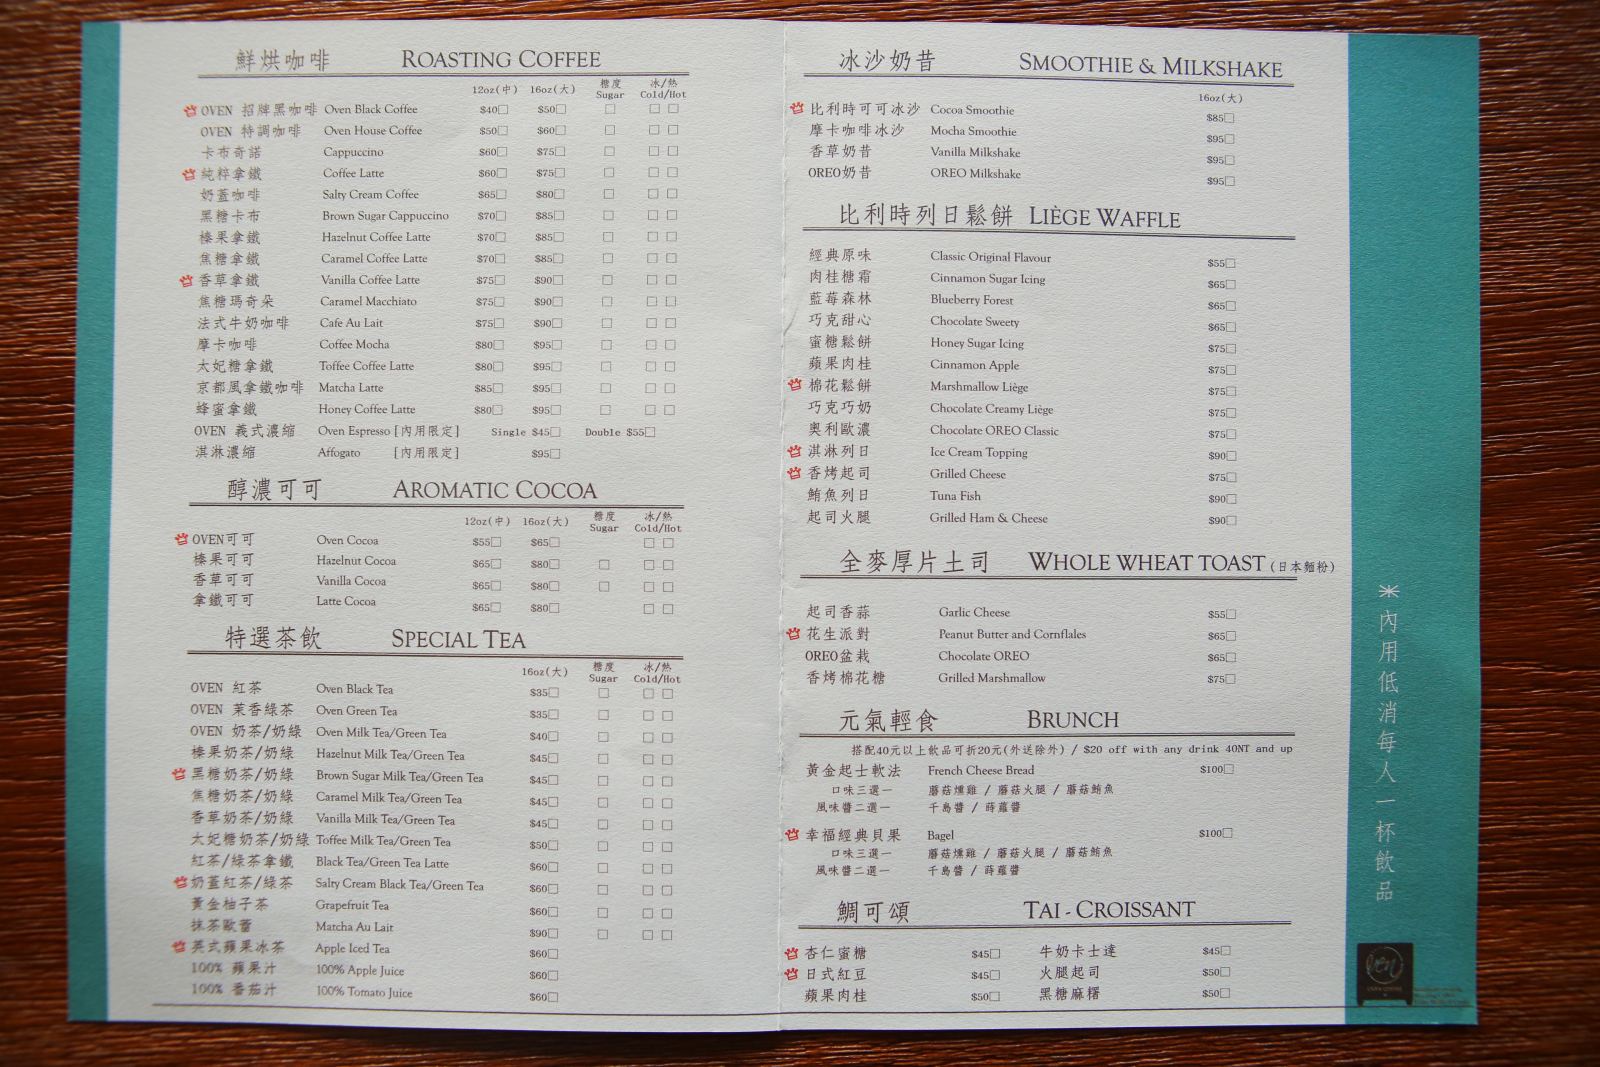 鮮烘咖啡 ROASTING COFFEE
12oz(中) 16oz(大) 糖度 Sugar 冰/熱 Cold/Hot
OVEN 招牌黑咖啡 Oven Black Coffee $40□ $50□ □ □ □
OVEN 特調咖啡 Oven House Coffee $50□ $60□ □ □ □
卡布奇諾 Cappuccino $60□ $75□ □ □ □
純粹拿鐵 Coffee Latte $60□ $75□ □ □ □
奶蓋咖啡 Salty Cream Coffee $65□ $80□ □ □ □
黑糖卡布 Brown Sugar Cappuccino $70□ $85□ □ □ □
榛果拿鐵 Hazelnut Coffee Latte $70□ $85□ □ □ □
焦糖拿鐵 Caramel Coffee Latte $70□ $85□ □ □ □
香草拿鐵 Vanilla Coffee Latte $75□ $90□ □ □ □
焦糖瑪奇朵 Caramel Macchiato $75□ $90□ □ □ □
法式牛奶咖啡 Cafe Au Lait $75□ $90□ □ □ □
摩卡咖啡 Coffee Mocha $80□ $95□ □ □ □
太妃糖拿鐵 Toffee Coffee Latte $80□ $95□ □ □ □
京都風拿鐵咖啡 Matcha Latte $85□ $95□ □ □ □
蜂蜜拿鐵 Honey Coffee Latte $80□ $95□ □ □ □
OVEN 義式濃縮 Oven Espresso [內用限定] Single $45□ Double $55□
淇淋濃縮 Affogato [內用限定] $95□
醇濃可可 AROMATIC COCOA
12oz(中) 16oz(大) 糖度 Sugar 冰/熱 Cold/Hot
OVEN可可 Oven Cocoa $55□ $65□ □ □
榛果可可 Hazelnut Cocoa $65□ $80□ □ □ □
香草可可 Vanilla Cocoa $65□ $80□ □ □ □
拿鐵可可 Latte Cocoa $65□ $80□ □ □
特選茶飲 SPECIAL TEA
16oz(大) 糖度 Sugar 冰/熱 Cold/Hot
OVEN 紅茶 Oven Black Tea $35□ □ □ □
OVEN 茉香綠茶 Oven Green Tea $35□ □ □ □
OVEN 奶茶/奶綠 Oven Milk Tea/Green Tea $40□ □ □ □
榛果奶茶/奶綠 Hazelnut Milk Tea/Green Tea $45□ □ □ □
黑糖奶茶/奶綠 Brown Sugar Milk Tea/Green Tea $45□ □ □ □
焦糖奶茶/奶綠 Caramel Milk Tea/Green Tea $45□ □ □ □
香草奶茶/奶綠 Vanilla Milk Tea/Green Tea $45□ □ □ □
太妃糖奶茶/奶綠 Toffee Milk Tea/Green Tea $50□ □ □ □
紅茶/綠茶拿鐵 Black Tea/Green Tea Latte $60□ □ □ □
奶蓋紅茶/綠茶 Salty Cream Black Tea/Green Tea $60□ □ □ □
黃金柚子茶 Grapefruit Tea $60□ □ □ □
抹茶歐蕾 Matcha Au Lait $90□ □ □ □
英式蘋果冰茶 Apple Iced Tea $60□
100% 蘋果汁 100% Apple Juice $60□
100% 番茄汁 100% Tomato Juice $60□
冰沙奶昔 SMOOTHIE & MILKSHAKE
16oz(大)
比利時可可冰沙 Cocoa Smoothie $85□
摩卡咖啡冰沙 Mocha Smoothie $95□
香草奶昔 Vanilla Milkshake $95□
OREO奶昔 OREO Milkshake $95□
比利時列日鬆餅 LIÈGE WAFFLE
經典原味 Classic Original Flavour $55□
肉桂糖霜 Cinnamon Sugar Icing $65□
藍莓森林 Blueberry Forest $65□
巧克甜心 Chocolate Sweety $65□
蜜糖鬆餅 Honey Sugar Icing $75□
蘋果肉桂 Cinnamon Apple $75□
棉花鬆餅 Marshmallow Liège $75□
巧克巧奶 Chocolate Creamy Liège $75□
奧利歐濃 Chocolate OREO Classic $75□
淇淋列日 Ice Cream Topping $90□
香烤起司 Grilled Cheese $75□
鮪魚列日 Tuna Fish $90□
起司火腿 Grilled Ham & Cheese $90□
全麥厚片土司 WHOLE WHEAT TOAST (日本麵粉)
起司香蒜 Garlic Cheese $55□
花生派對 Peanut Butter and Cornflales $65□
OREO盆栽 Chocolate OREO $65□
香烤棉花糖 Grilled Marshmallow $75□
元氣輕食 BRUNCH
搭配40元以上飲品可折20元(外送除外) / $20 off with any drink 40NT and up
黃金起士軟法 French Cheese Bread $100□
口味三選一 蘑菇燻雞 / 蘑菇火腿 / 蘑菇鮪魚
風味醬二選一 千島醬 / 蒔蘿醬
幸福經典貝果 Bagel $100□
口味三選一 蘑菇燻雞 / 蘑菇火腿 / 蘑菇鮪魚
風味醬二選一 千島醬 / 蒔蘿醬
鯛可頌 TAI - CROISSANT
杏仁蜜糖 $45□ 牛奶卡士達 $45□
日式紅豆 $45□ 火腿起司 $50□
蘋果肉桂 $50□ 黑糖麻糬 $50□
※內用低消每人一杯飲品